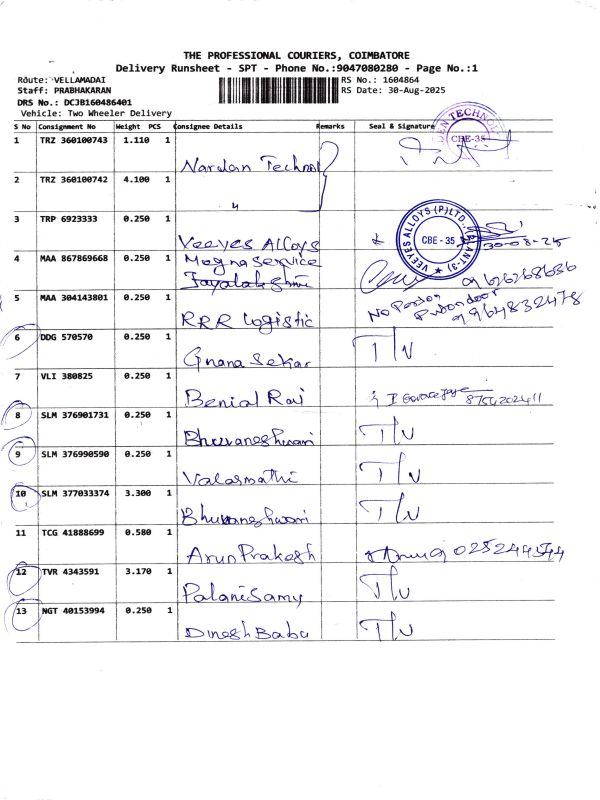 THE PROFESSIONAL COURIERS, COIMBATORE
Delivery Runsheet - SPT - Phone No.:9047080280 - Page No.:1
Route: VELLAMADAI RS No.: 1604864
Staff: PRABHAKARAN RS Date: 30-Aug-2025
DRS No.: DCJB160486401
Vehicle: Two Wheeler Delivery
S No Consignment No Weight PCS Consignee Details Remarks Seal & Signature
1 TRZ 360100743 1.110 1 Nardan Technol CBE-35
2 TRZ 360100742 4.100 1 "
3 TRP 6923333 0.250 1 Veeyes Alloys VEEYES ALLOYS (P) LTD. CBE - 35 30-08-25
4 MAA 867869668 0.250 1 Megna Service
Jayalakshmi
5 MAA 304143801 0.250 1 RRR Logistic No Person 9964832478
6 DDG 570570 0.250 1 Gnana Sekar T/v
7 VLI 380825 0.250 1 Benial Raj 8754202411
8 SLM 376901731 0.250 1 Bhuvaneshwari T/v
9 SLM 376990590 0.250 1 Valarmathi T/v
10 SLM 377033374 3.300 1 Bhuvaneshwari T/v
11 TCG 41888699 0.580 1 Arun Prakash
12 TVR 4343591 3.170 1 Palanisamy T/v
13 NGT 40153994 0.250 1 Dinesh Babu T/v